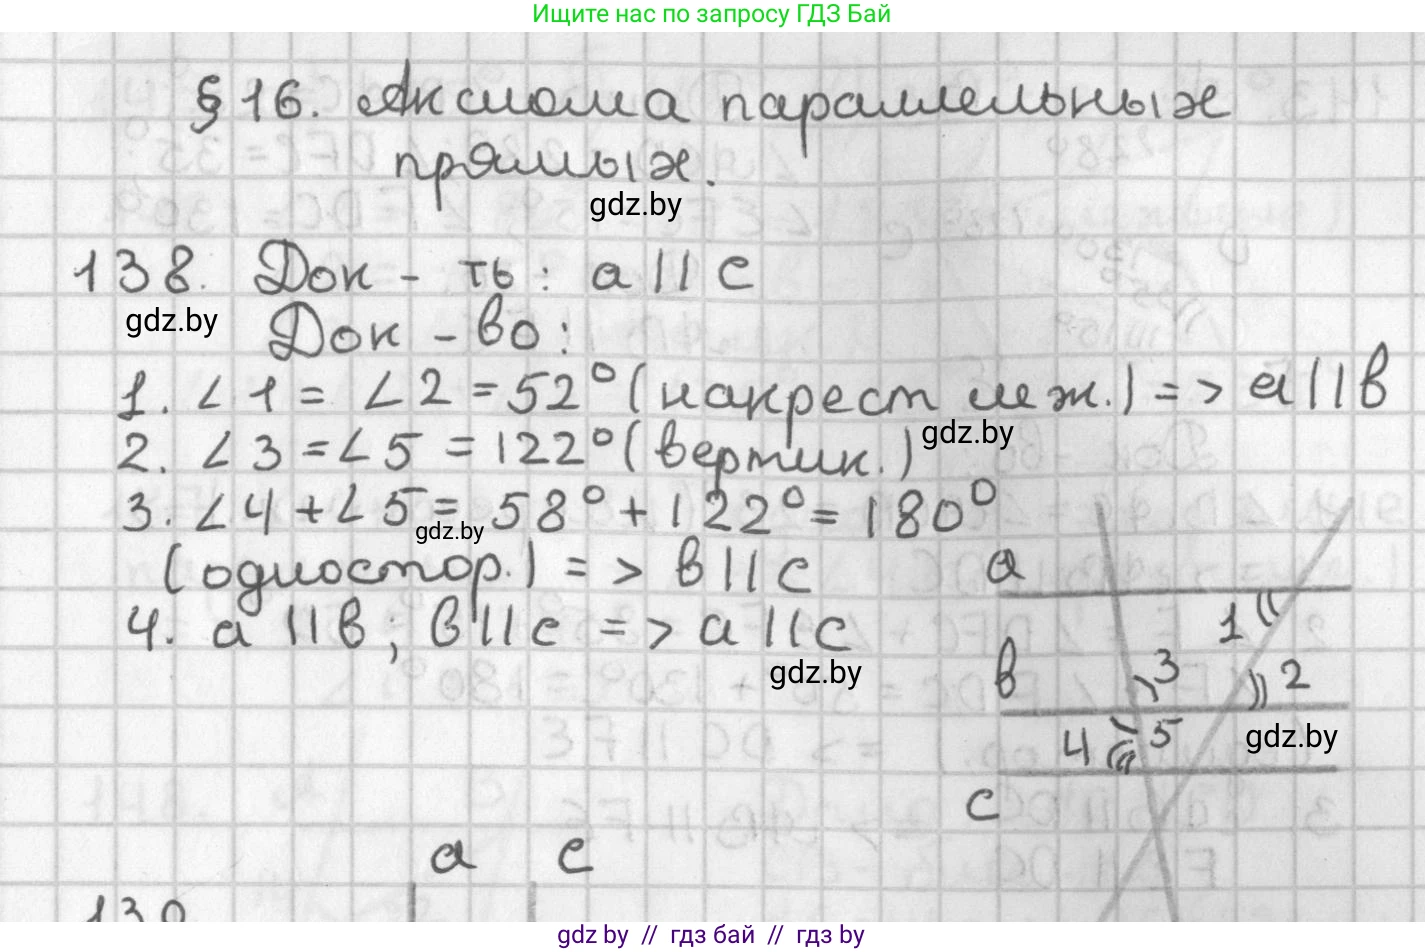 Ищите нас по запросу ГДЗ Бай
§ 16. Аксиома параллельных
прямых.
gdz.by
138. Док - ть: a || c
gdz.by
Док - во:
1. ∠1 = ∠2 = 52° (накрест леж.) => a || b
gdz.by
2. ∠3 = ∠5 = 122° (вертик.)
3. ∠4 + ∠5 = 58° + 122° = 180°
gdz.by
(одностор.) => b || c
4. a || b; b || c => a || c
gdz.by
a
1
b
3
2
4
5
gdz.by
c
a c
139
gdz by // гдз бай // гдз by